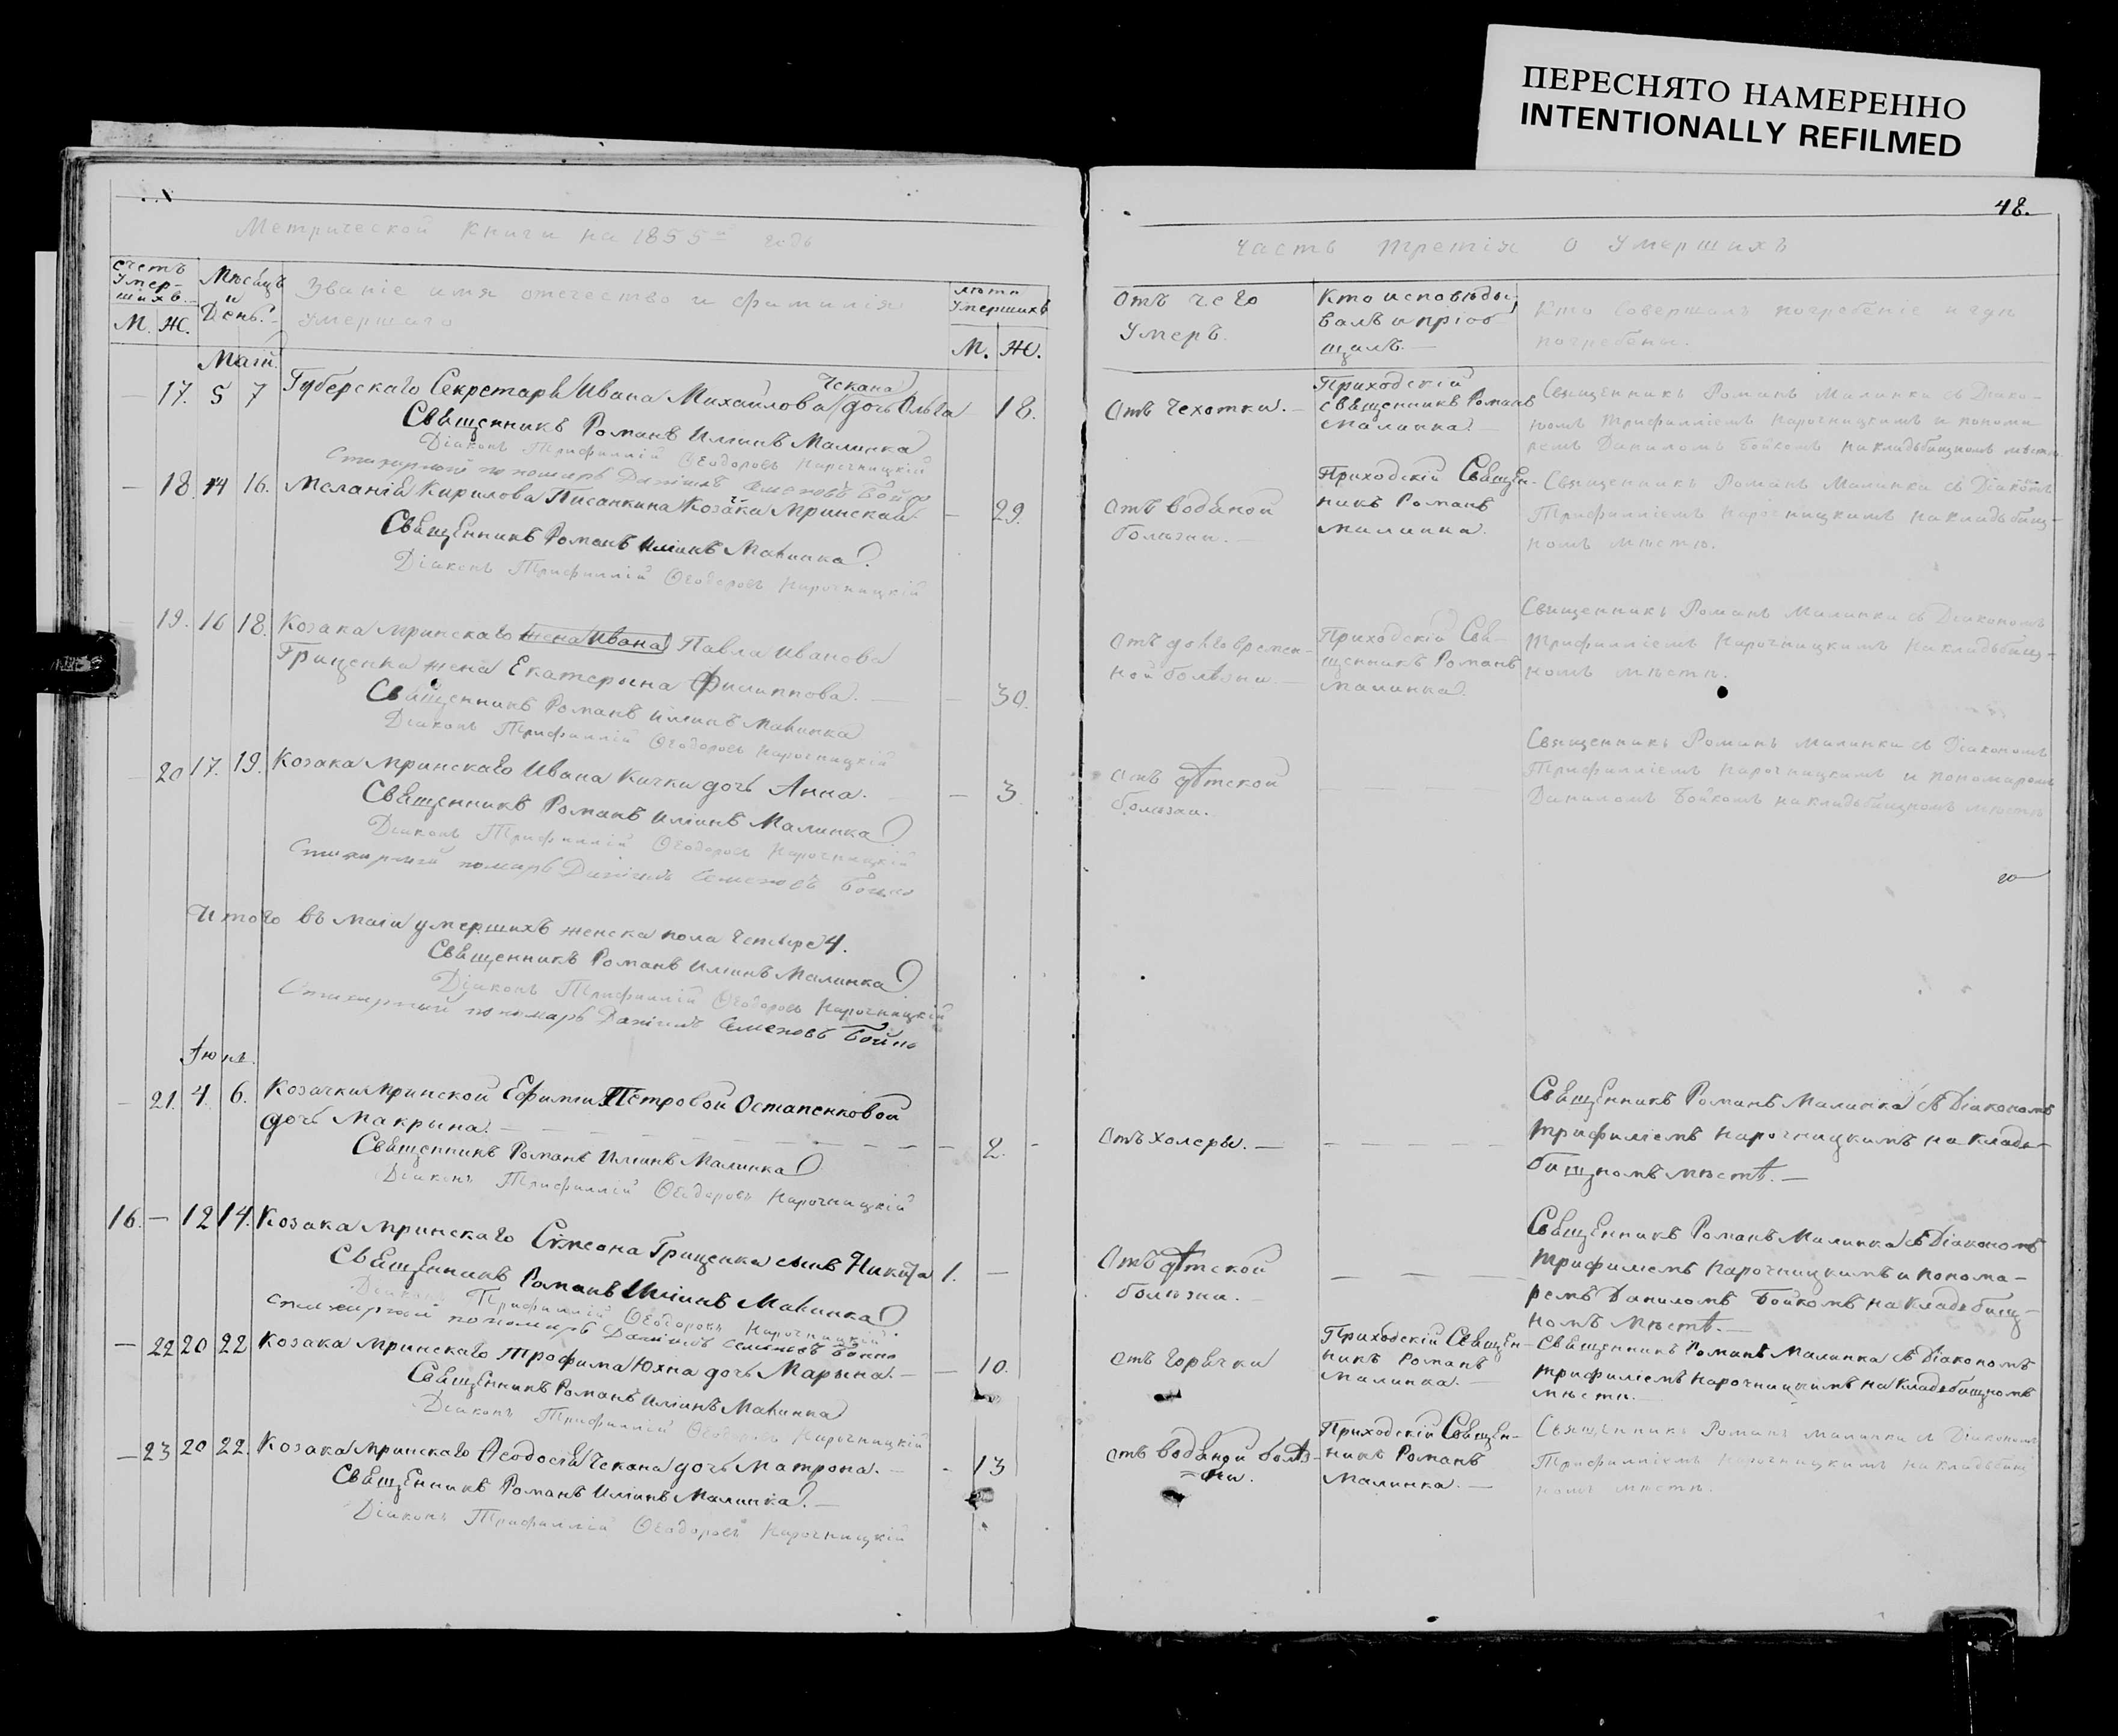 ПЕРЕСНЯТО НАМЕРЕННО
INTENTIONALLY REFILMED
48.
Метрической Книги на 1855й годъ
Часть третія о умершихъ
Счетъ умер-шихъ.
М. Ж.
Мѣсяцъ и День.
Званіе имя отечество и фамилія
умершаго
лѣта умершихъ
М. Ж.
Отъ чего
умеръ.
Кто исповѣды-
валъ и пріоб
щалъ.—
Кто совершалъ погребеніе и гдѣ
погребены.
Маій.
— 17. 5 7 Губерскаго Секретаря Ивана Михайлова Чекана дочь Ольга 18.
Священникъ Романъ Иліинъ Малинка
Діаконъ Трифиллій Ѳеодоровъ Нарочницкій
Стихарный пономарь Даніилъ Семеновъ Бойко
Отъ Чехотки.—
Приходскій
священникъ Романъ
Малинка
Священникъ Романъ Малинка съ Діако-
номъ Трифилліемъ Нарочницкимъ и понома
ремъ Даниломъ Бойкомъ на кладьбищномъ мѣстѣ
— 18. 14 16. Меланія Кирилова Писанкина Козачка Мринская — 29.
Священникъ Романъ Иліинъ Малинка
Діаконъ Трифиллій Ѳеодоровъ Нарочницкій
Отъ водяной
болѣзни.—
Приходскій Священ-
никъ Романъ
Малинка.
Священникъ Романъ Малинка съ Діакономъ
Трифилліемъ Нарочницкимъ на кладьбищ-
номъ мѣстѣ.
19. 16 18. Козака Мринскаго жена Ивана Павла Иванова
Гриценка жена Екатерына Филиппова. — 30.
Священникъ Романъ Иліинъ Малинка
Діаконъ Трифиллій Ѳеодоровъ Нарочницкій
Отъ долговремен-
ной болѣзни.—
Приходскій Свя-
щенникъ Романъ
Малинка.
Священникъ Романъ Малинка съ Діакономъ
Трифилліемъ Нарочницкимъ на кладьбищ-
номъ мѣстѣ.
20 17. 19. Козака Мринскаго Ивана Кички дочь Анна. — 3
Священникъ Романъ Иліинъ Малинка
Діаконъ Трифиллій Ѳеодоровъ Нарочницкій
Стихарный помарь Даніилъ Семеновъ Бойко
Отъ дѣтской
болѣзни.
Священникъ Романъ Малинка съ Діакономъ
Трифилліемъ Нарочницкимъ и пономаремъ
Даниломъ Бойкомъ на кладьбищномъ мѣстѣ
Итого въ маіи умершихъ женска пола Четыре 4.
Священникъ Романъ Иліинъ Малинка
Діаконъ Трифиллій Ѳеодоровъ Нарочницкій
Стихарный пономарь Даніилъ Семеновъ Бойко
Іюнь.
— 21. 4. 6. Козачки Мринской Ефиміи Петровой Остапенковой
дочь Макрына. — 2. -
Священникъ Романъ Иліинъ Малинка
Діаконъ Трифиллій Ѳеодоровъ Нарочницкій
Отъ холеры.—
Священникъ Романъ Малинка съ Діакономъ
Трифиліемъ Нарочницкимъ на кладь-
бищномъ мѣстѣ.—
16. — 12 14. Козака Мринскаго Симеона Гриценка сынъ Никита 1. —
Священникъ Романъ Иліинъ Малинка
Діаконъ Трифиллій Ѳеодоровъ Нарочницкій
Стихарный пономарь Даніилъ Семеновъ Бойко
Отъ дѣтской
болѣзни.—
Священникъ Романъ Малинка съ Діакономъ
Трифиліемъ Нарочницкимъ и понома-
ремъ Даниломъ Бойкомъ на кладьбищ-
номъ мѣстѣ.—
— 22 20 22 Козака Мринскаго Трофима Юхна дочь Марына.— — 10.
Священникъ Романъ Иліинъ Малинка
Діаконъ Трифиллій Ѳеодоровъ Нарочницкій
отъ горячки
Приходскій Священ-
никъ Романъ
Малинка.—
Священникъ Романъ Малинка съ Діакономъ
Трифиліемъ Нарочницкимъ на кладьбищномъ
мѣсти.—
— 23 20 22. Козака Мринскаго Ѳеодосія Чекана дочь Матрона.— - 13
Священникъ Романъ Иліинъ Малинка.—
Діаконъ Трифиллій Ѳеодоровъ Нарочницкій
отъ водяной болѣз-
ни.
Приходскій Священ-
никъ Романъ
Малинка.—
Священникъ Романъ Малинка съ Діакономъ
Трифилліемъ Нарочницкимъ на кладьбищ
номъ мѣстѣ.